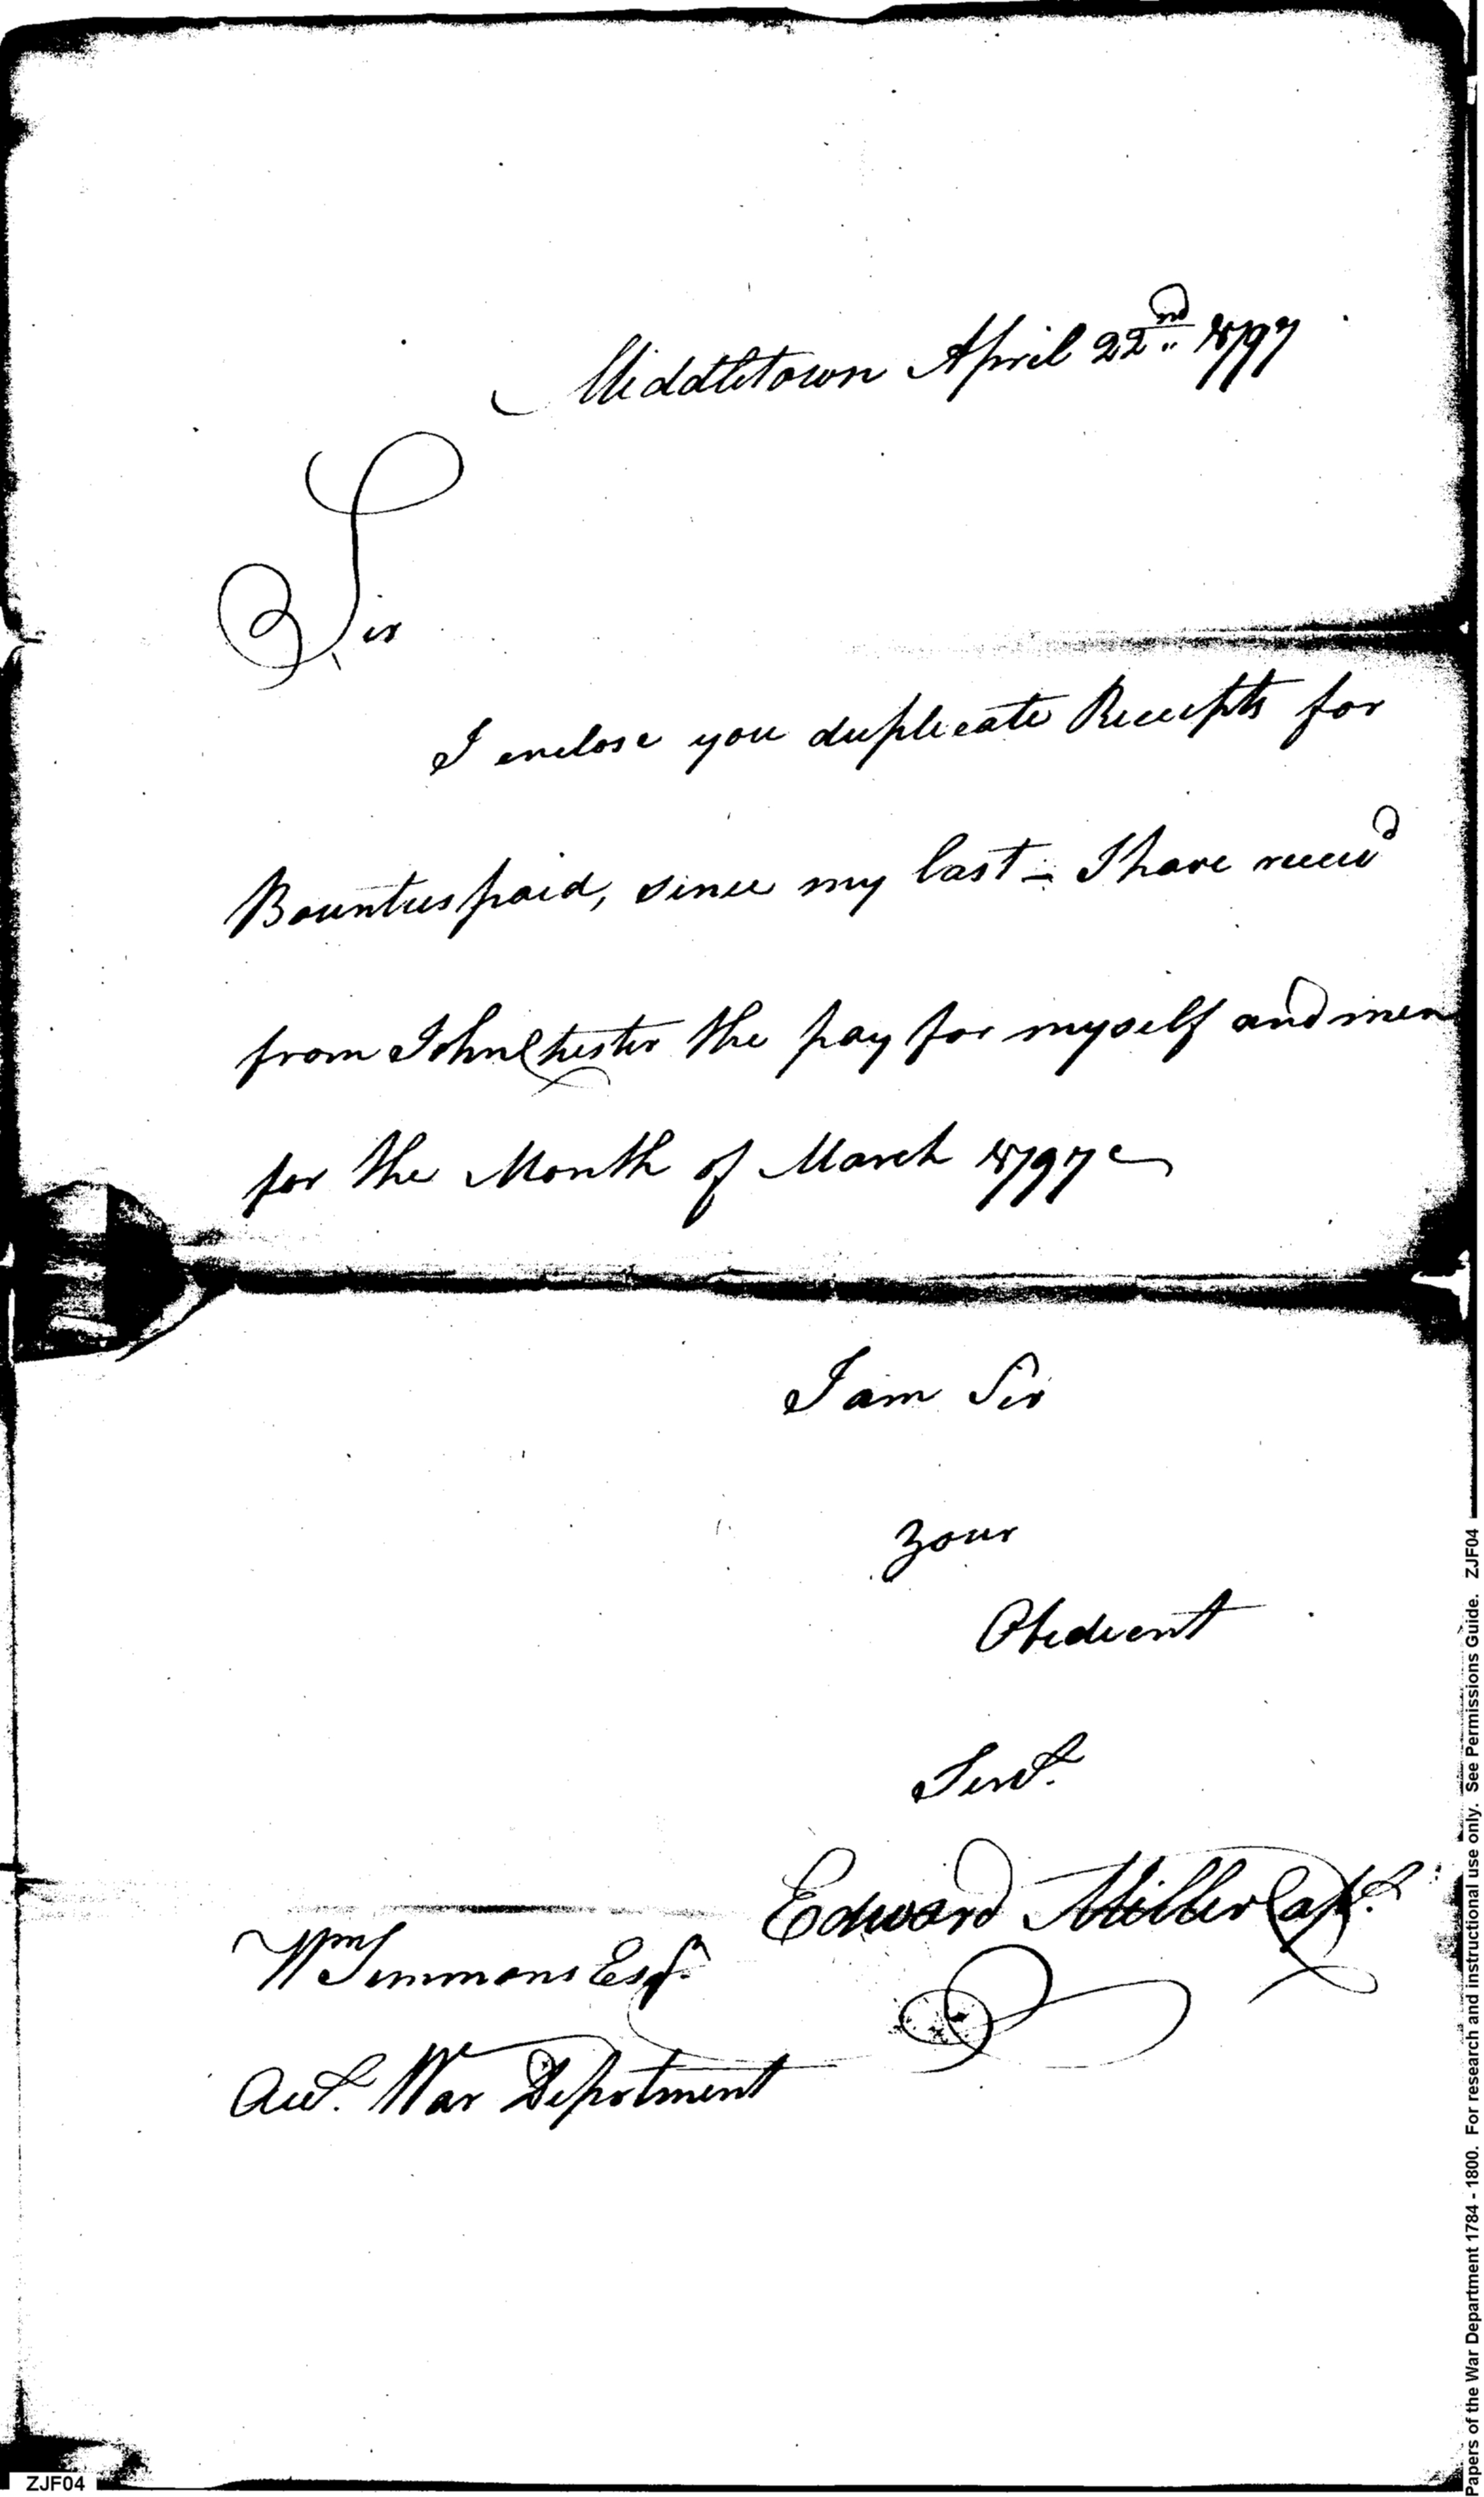 Middletown April 22nd 1797
Sir
I enclose you duplicate Receipts for
Bounties paid, since my last - I have receivd
from John Chester the pay for myself and men
for the Month of March 1797
I am Sir
Your
Obedient
Servt.
Edward Miller Capt.
Wm Simmons Esqr.
Acct. War Depotment
ZJF04
Papers of the War Department 1784 - 1800. For research and instructional use only. See Permissions Guide. ZJF04